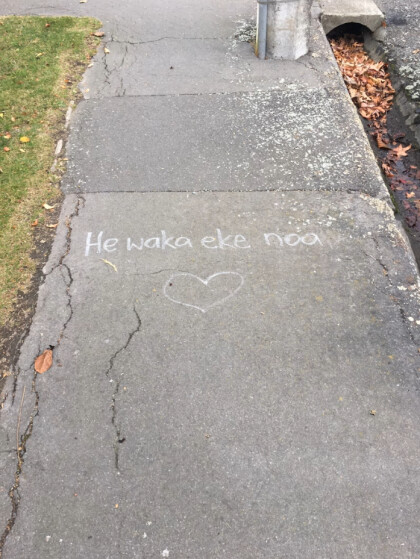 He waka eke noa